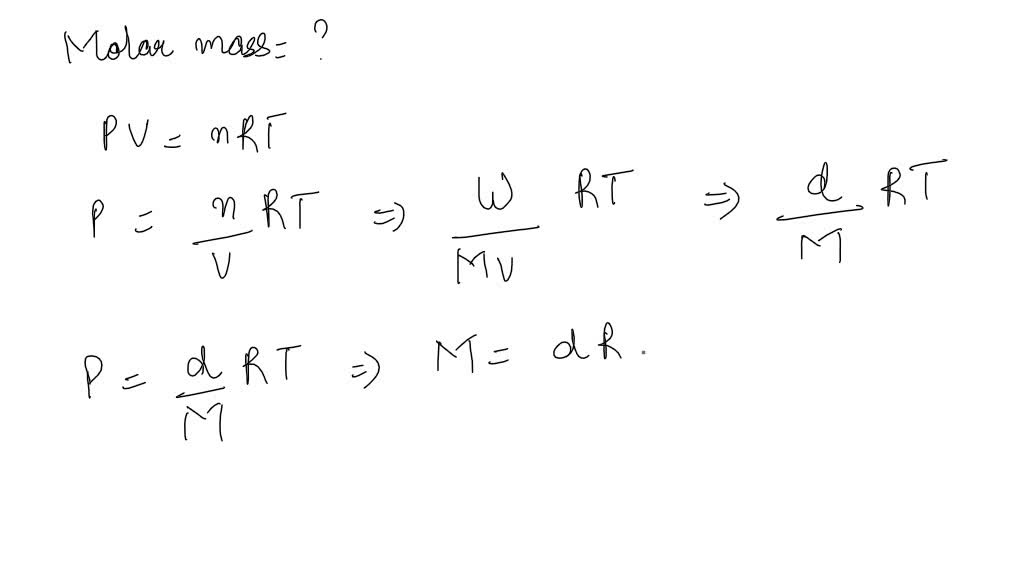 Molar mass = ?
PV = nRT
P = n/V RT => W/MV RT => d/M RT
P = d/M RT => M = dR.